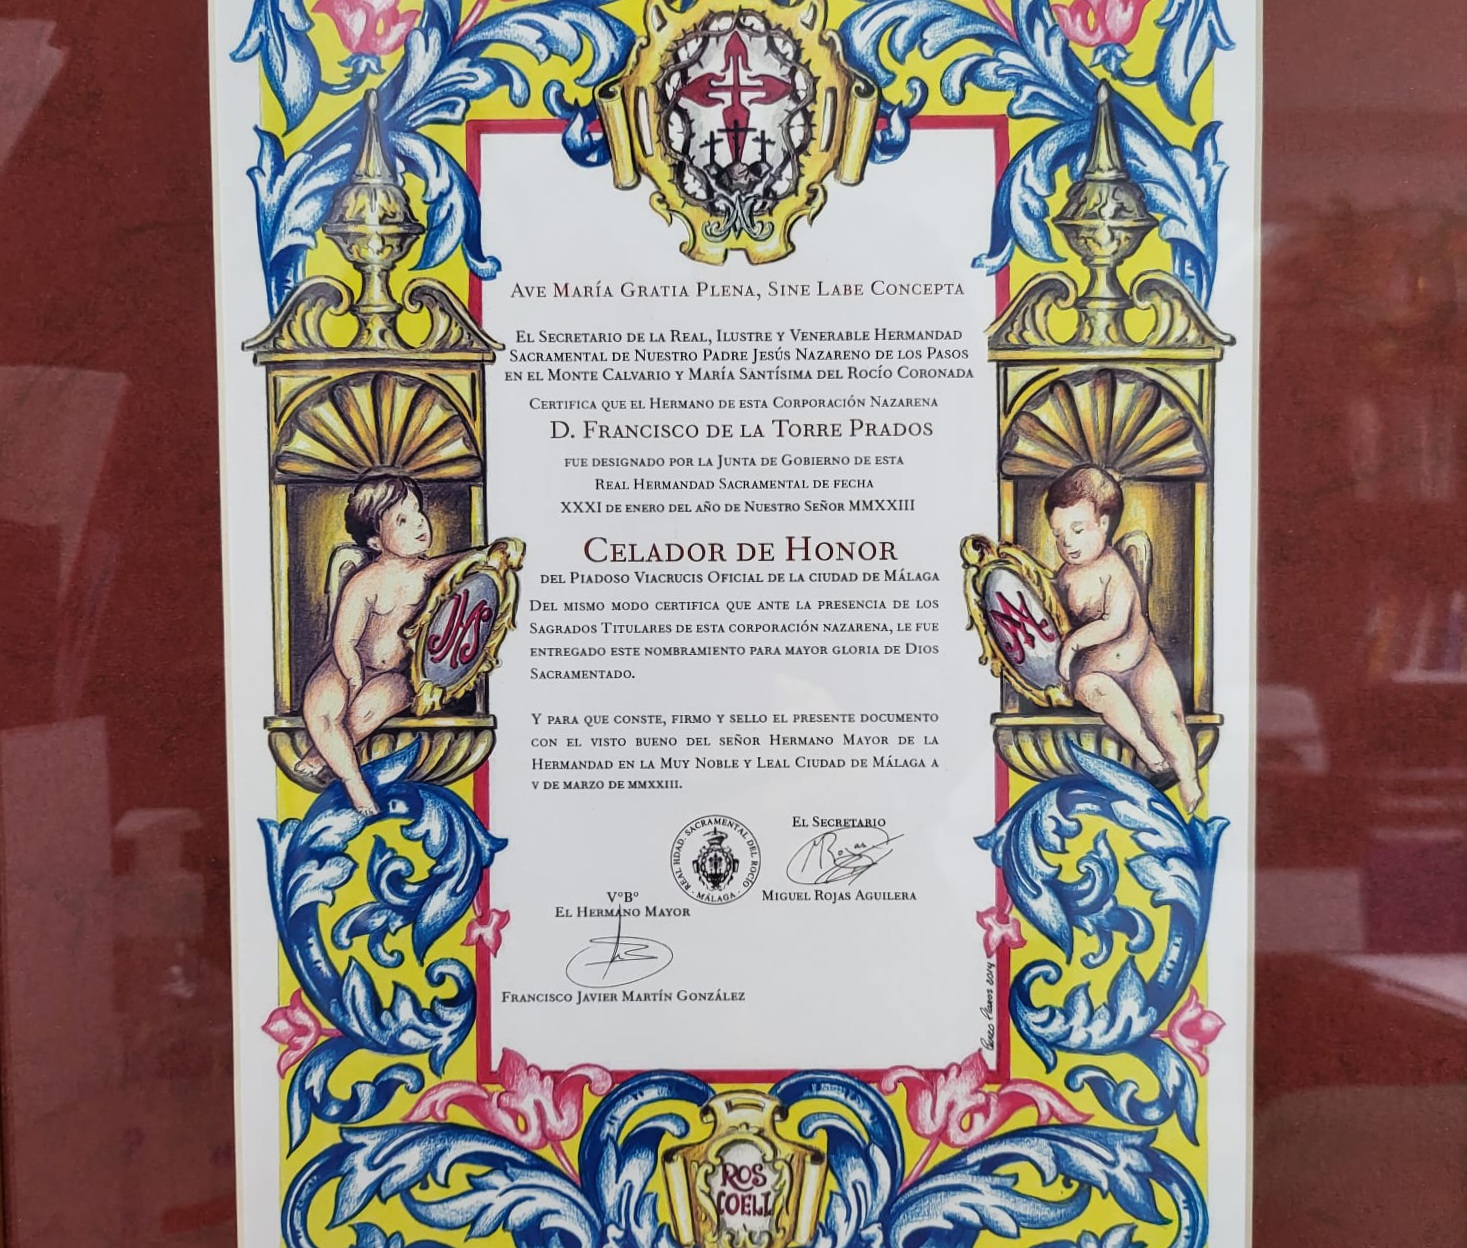 Ave María Gratia Plena, Sine Labe Concepta
El Secretario de la Real, Ilustre y Venerable Hermandad
Sacramental de Nuestro Padre Jesús Nazareno de los Pasos
en el Monte Calvario y María Santísima del Rocío Coronada
Certifica que el Hermano de esta Corporación Nazarena
D. Francisco de la Torre Prados
fue designado por la Junta de Gobierno de esta
Real Hermandad Sacramental de fecha
XXXI de enero del año de Nuestro Señor MMXXIII
Celador de Honor
del Piadoso Viacrucis Oficial de la ciudad de Málaga
Del mismo modo certifica que ante la presencia de los
Sagrados Titulares de esta corporación nazarena, le fue
entregado este nombramiento para mayor gloria de Dios
Sacramentado.
JHS
Y para que conste, firmo y sello el presente documento
con el visto bueno del señor Hermano Mayor de la
Hermandad en la Muy Noble y Leal Ciudad de Málaga a
v de marzo de mmxxiii.
El Secretario
REAL HDAD. SACRAMENTAL DEL ROCÍO
- MÁLAGA -
MRojas
Miguel Rojas Aguilera
VºBº
El Hermano Mayor
Francisco Javier Martín González
2014
ROS
COELI